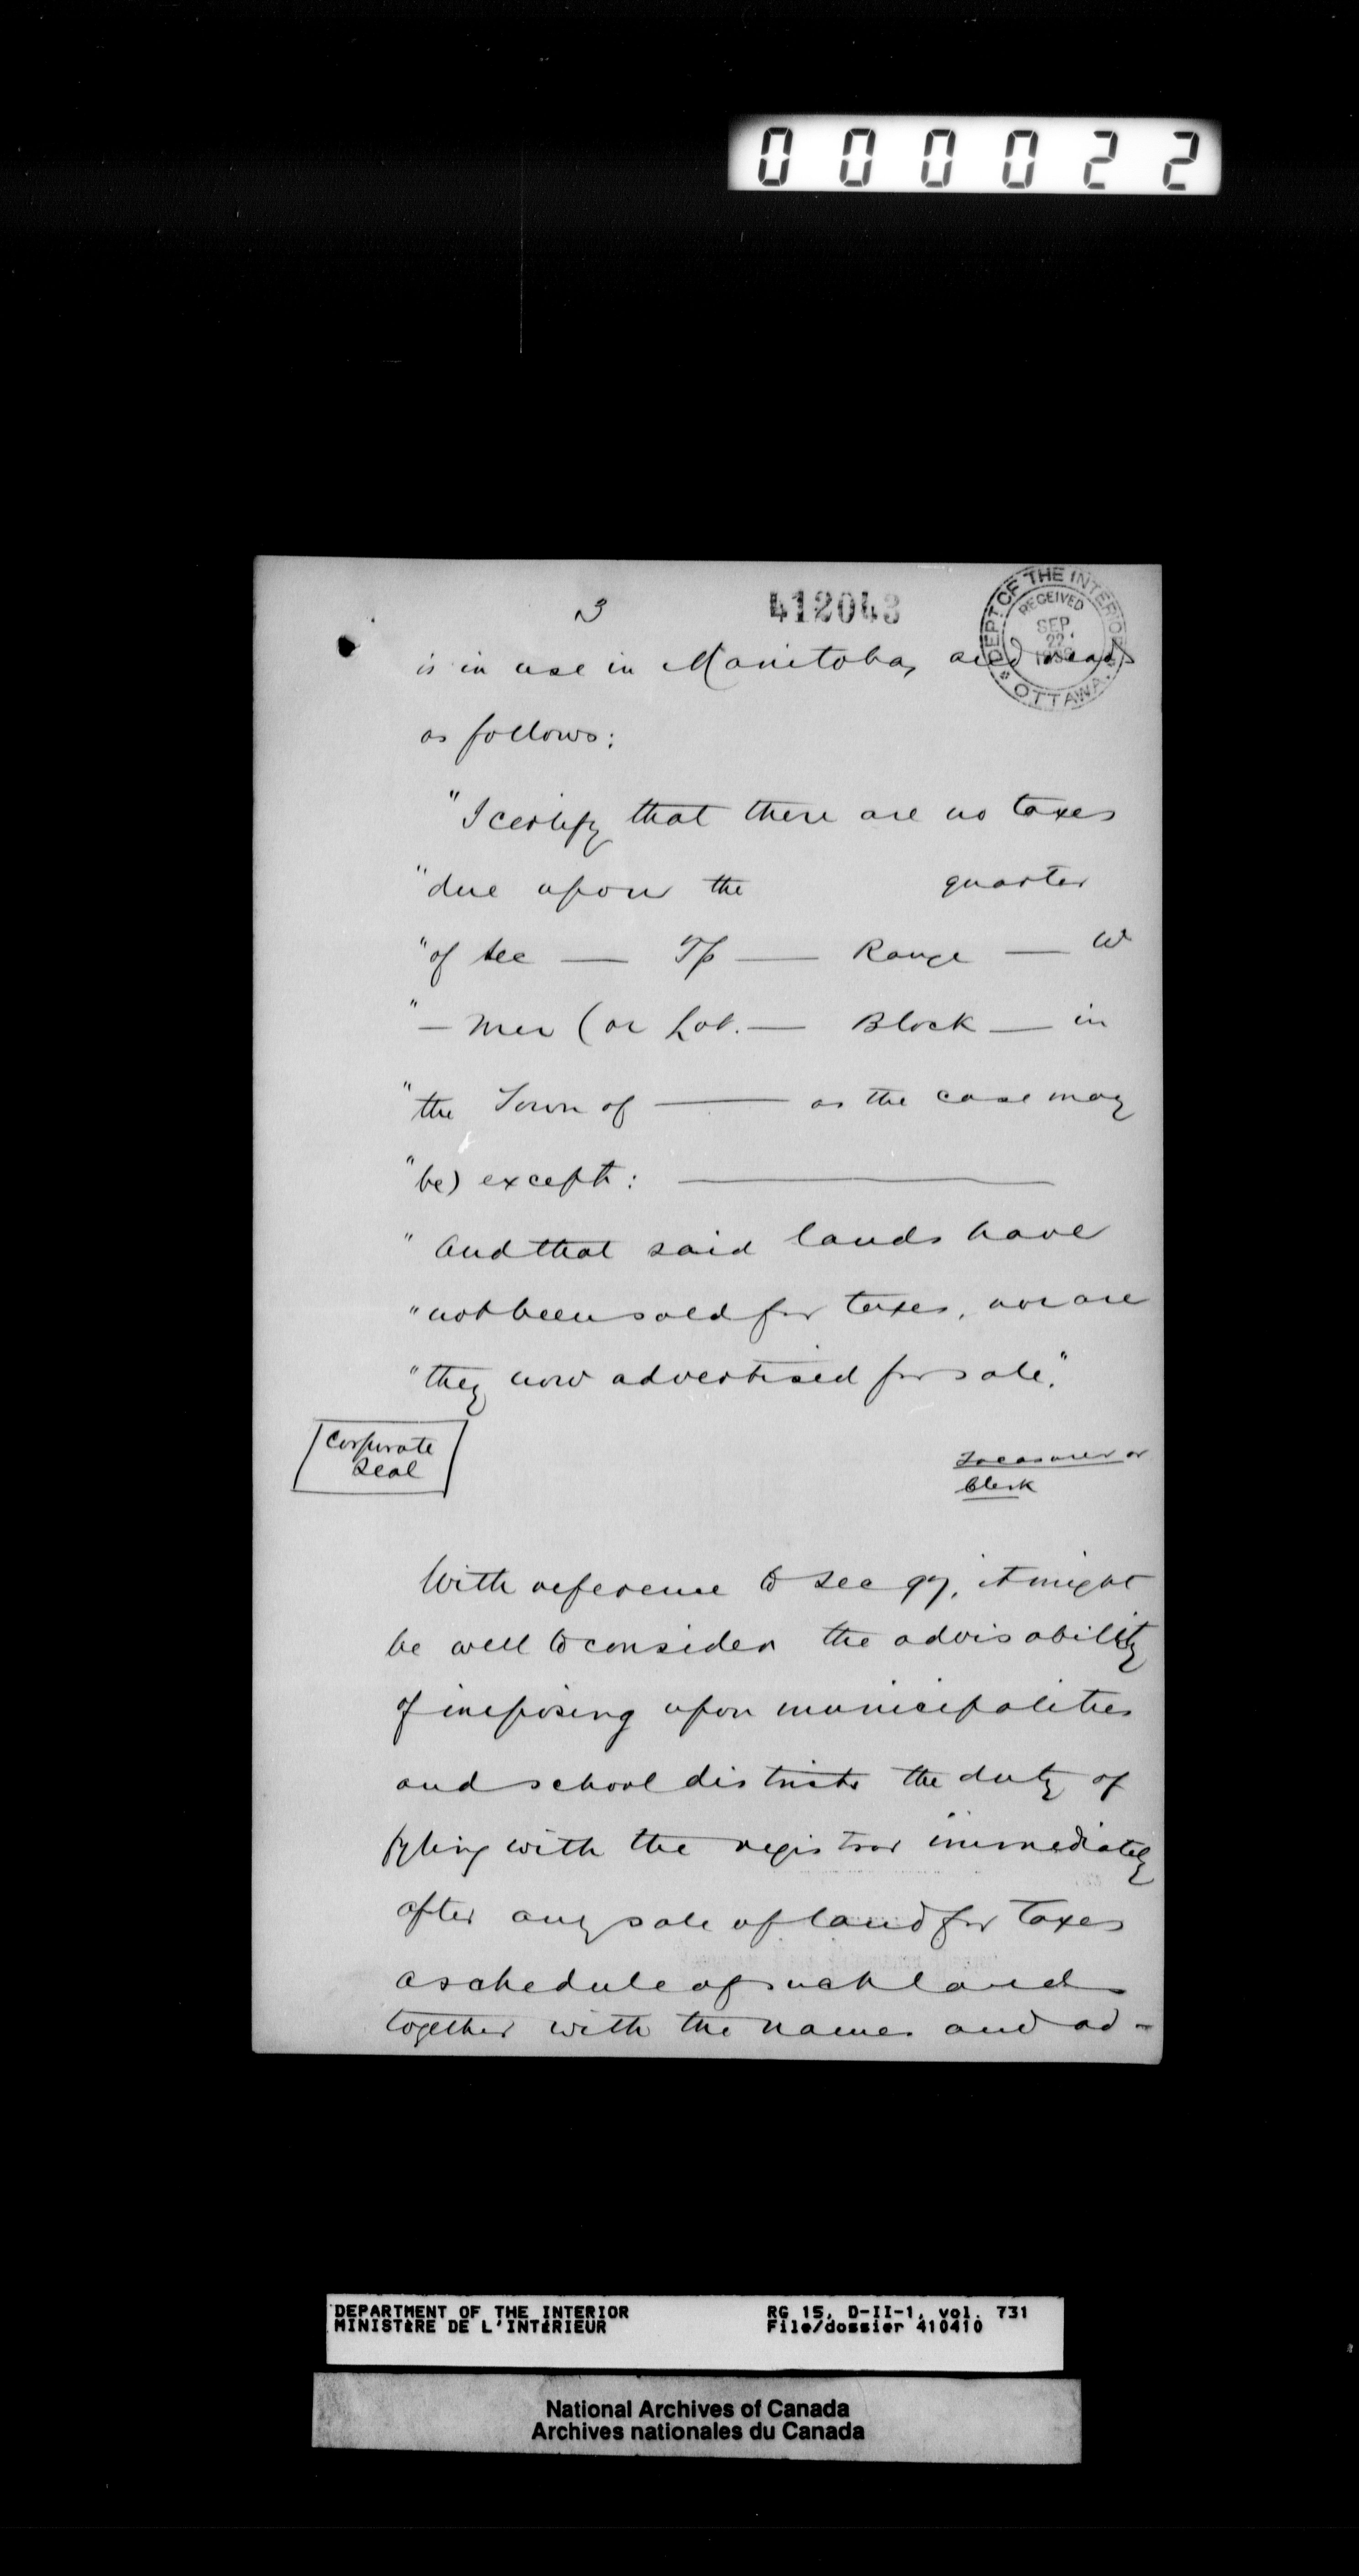 000022
3
412043
DEPT OF THE INTERIOR
RECEIVED
SEP
22
OTTAWA
is in use in Manitoba, and reads
as follows:
"I certify that there are no taxes
"due upon the quarter
"of sec — Tp — Range — W
"— Mer (or Lot. — Block — in
"the Town of — as the case may
"be) except: —
"And that said lands have
"not been sold for taxes, nor are
"they now advertised for sale."
Corporate
Seal
Treasurer or
Clerk
With reference to sec 97, it might
be well to consider the advisability
of imposing upon municipalities
and school districts the duty of
fyling with the registrar immediately
after any sale of land for taxes
a schedule of such lands
together with the names and ad-
DEPARTMENT OF THE INTERIOR
MINISTÈRE DE L'INTÉRIEUR
RG 15, D-II-1, vol. 731
File/dossier 410410
National Archives of Canada
Archives nationales du Canada